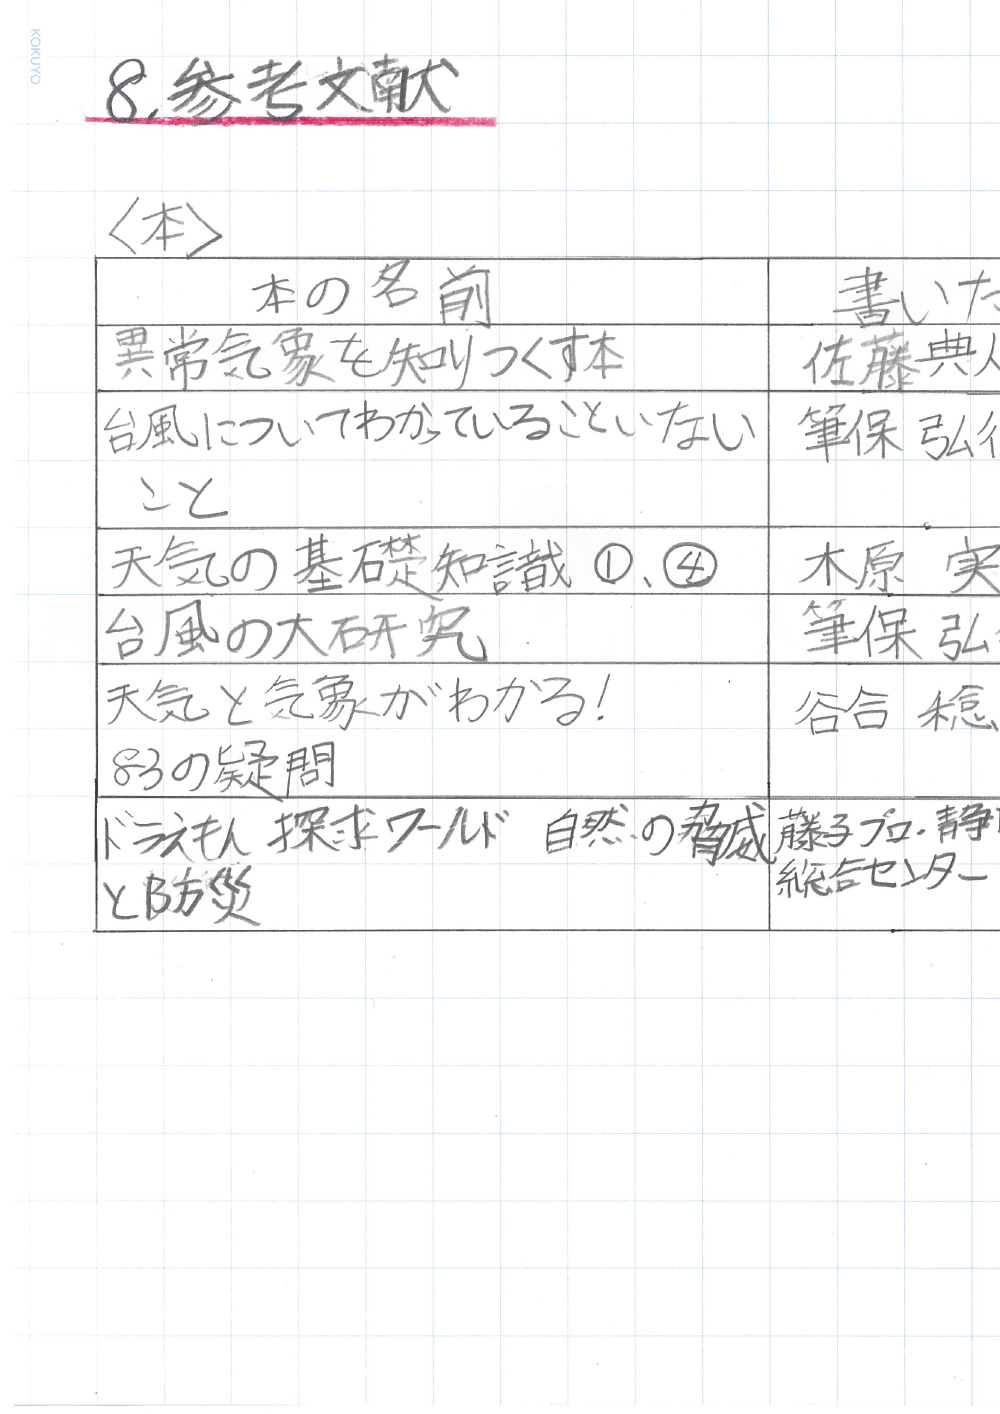 KOKUYO
8.参考文献
〈本〉
本の名前 書いた
異常気象を知りつくす本 佐藤典人
台風についてわかっていることいない 筆保 弘徳
こと
天気の基礎知識 ①、④ 木原 実
台風の大研究 筆保 弘
天気と気象がわかる! 谷合 稔
83の疑問
ドラえもん 探求ワールド 自然の脅威 藤子プロ・静
と防災 総合センター